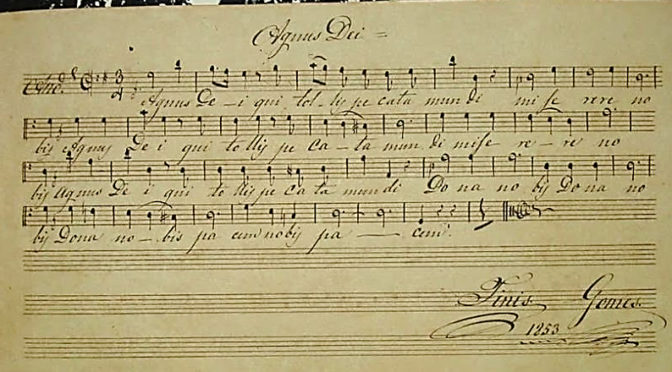 Agnus Dei =
And.e 3 2 Agnus De - i qui tol - lis pe cata mun di mi se rere no
bis Agnus De i qui tollis pe ca - ta mun di mise re - re no
bis Agnus De i qui to llis pe Ca ta mundi Do na no bis Do na no
bis Dona no - bis pa cem nobis pa - cem.
Finis Gomes.
1853